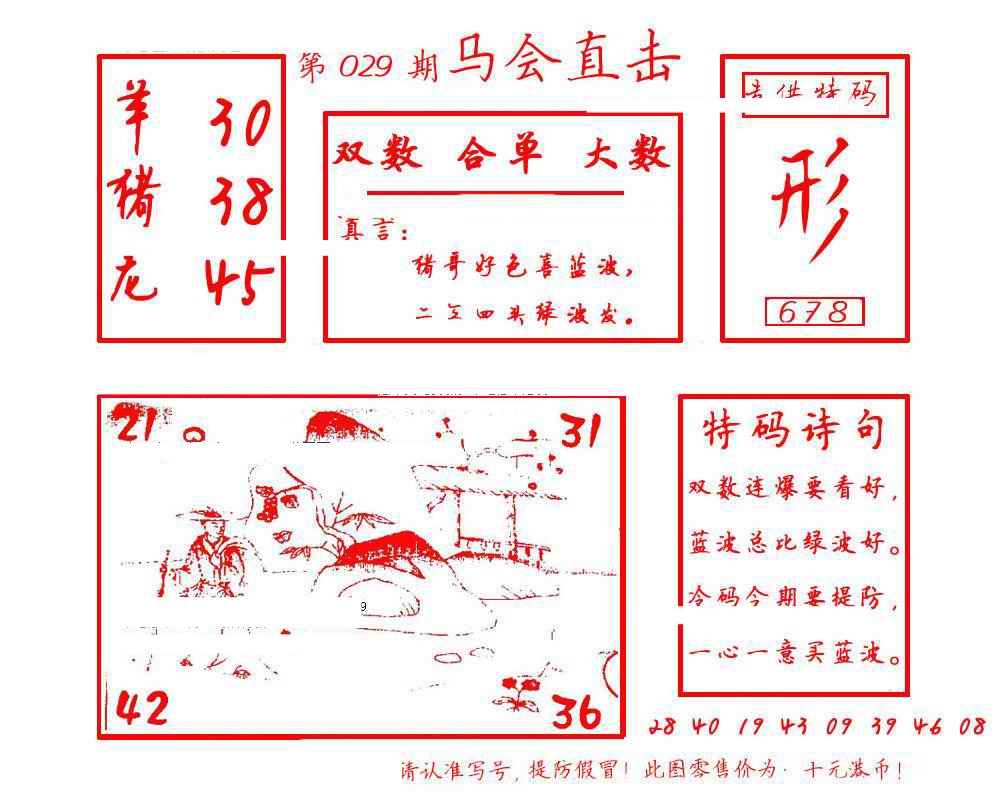 第 029 期 马会直击
羊 30
猪 38
龙 45
双数 合单 大数
真言：
猪哥好色喜蓝波，
二 四头绿波发。
供特码
形
678
21
31
9
42
36
特码诗句
双数连爆要看好，
蓝波总比绿波好。
冷码今期要提防，
一心一意买蓝波。
28 40 19 43 09 39 46 08
请认准写号，提防假冒！此图零售价为·十元港币！